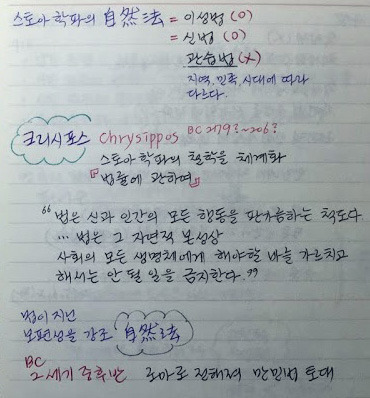 스토아 학파의 自然法 = 이성법 (O)
= 신법 (O)
관습법 (X)
지역, 민족, 시대에 따라
다르다.
크리시포스 Chrysippos BC 279?~206?
스토아 학파의 철학을 체계화
『법률에 관하여』
“법은 신과 인간의 모든 행동을 판가름하는 척도다
... 법은 그 자연적 본성상
사회의 모든 생명체에게 해야할 바를 가르치고
해서는 안 될 일을 금지한다.”
법이 지닌
보편성을 강조 自然法
BC
2세기 중후반 로마로 전해져 만민법 토대